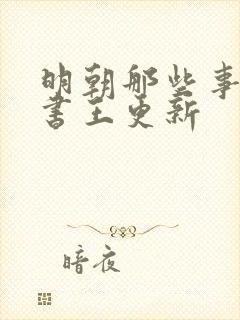 明朝那些事
书王更新
暗夜